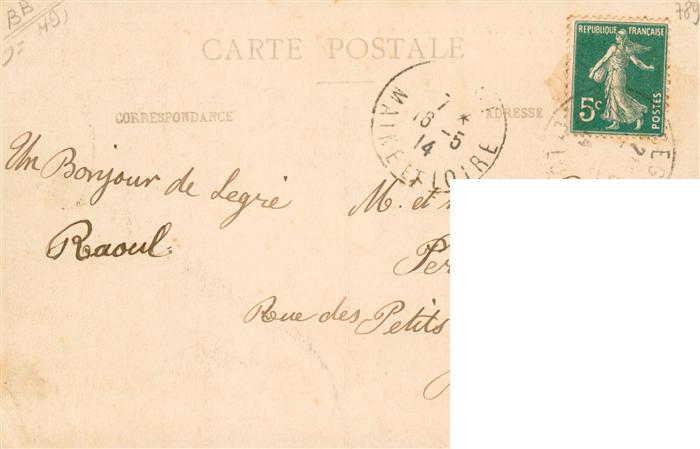 BB
CARTE POSTALE
CORRESPONDANCE
ADRESSE
RÉPUBLIQUE FRANÇAISE
5c
POSTES
MAINE ET LOIRE
14
Un Bonjour de Segré
Raoul
M. et
Rue des Petits